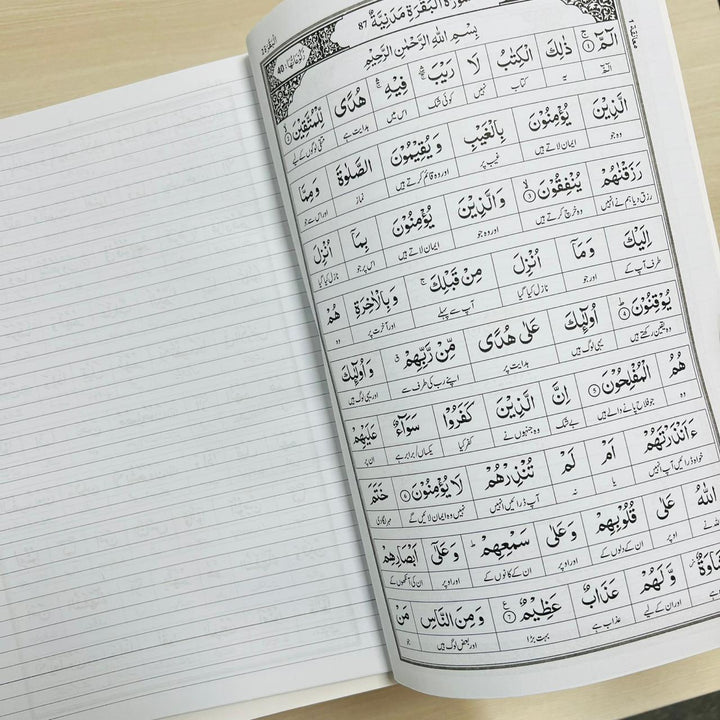 سورة البقرة مدنية 87
رکوعاتھا 40
بسم الله الرحمن الرحيم
الٓمّٓ ۚ﴿۱﴾ ذٰلِكَ الْكِتٰبُ لَا رَيْبَ ۛ فِيْهِ ۛ هُدًى لِّلْمُتَّقِيْنَ ﴿۲﴾
الٓمٓ یہ کتاب نہیں کوئی شک اس میں ہدایت ہے متقی لوگوں کے لیے
الَّذِيْنَ يُؤْمِنُوْنَ بِالْغَيْبِ وَيُقِيْمُوْنَ الصَّلٰوةَ وَمِمَّا
وہ جو ایمان لاتے ہیں غیب پر اور وہ قائم کرتے ہیں نماز اور اس سے جو
رَزَقْنٰهُمْ يُنْفِقُوْنَ ﴿۳﴾ وَالَّذِيْنَ يُؤْمِنُوْنَ بِمَآ اُنْزِلَ
رزق دیا ہم نے انہیں وہ خرچ کرتے ہیں اور وہ جو ایمان لاتے ہیں اس پر جو نازل کیا گیا
اِلَيْكَ وَمَآ اُنْزِلَ مِنْ قَبْلِكَ ۚ وَبِالْاٰخِرَةِ هُمْ
طرف آپ کے اور جو نازل کیا گیا آپ سے پہلے اور آخرت پر وہ
يُوْقِنُوْنَ ﴿۴﴾ اُولٰٓئِكَ عَلٰى هُدًى مِّنْ رَّبِّهِمْ ۗ وَاُولٰٓئِكَ
وہ یقین رکھتے ہیں یہی لوگ ہیں ہدایت پر اپنے رب کی طرف سے اور یہی لوگ ہیں
هُمُ الْمُفْلِحُوْنَ ﴿۵﴾ اِنَّ الَّذِيْنَ كَفَرُوْا سَوَآءٌ عَلَيْهِمْ
وہ جو فلاح پانے والے ہیں بے شک وہ جنہوں نے کفر کیا یکساں/برابر ہے ان پر
ءَاَنْذَرْتَهُمْ اَمْ لَمْ تُنْذِرْهُمْ لَا يُؤْمِنُوْنَ ﴿۶﴾ خَتَمَ
خواہ ڈرائیں آپ انہیں یا نہ آپ ڈرائیں انہیں نہیں وہ ایمان لائیں گے مہر لگادی
اللّٰهُ عَلٰى قُلُوْبِهِمْ وَعَلٰى سَمْعِهِمْ ۗ وَعَلٰٓى اَبْصَارِهِمْ
اللہ نے اوپر ان کے دلوں کے اور اوپر ان کے کانوں کے اور اوپر ان کی آنکھوں کے
وَّلَهُمْ عَذَابٌ عَظِيْمٌ ﴿۷﴾ وَمِنَ النَّاسِ مَنْ
اور ان کے لیے عذاب ہے بہت بڑا اور بعض لوگ ہیں جو